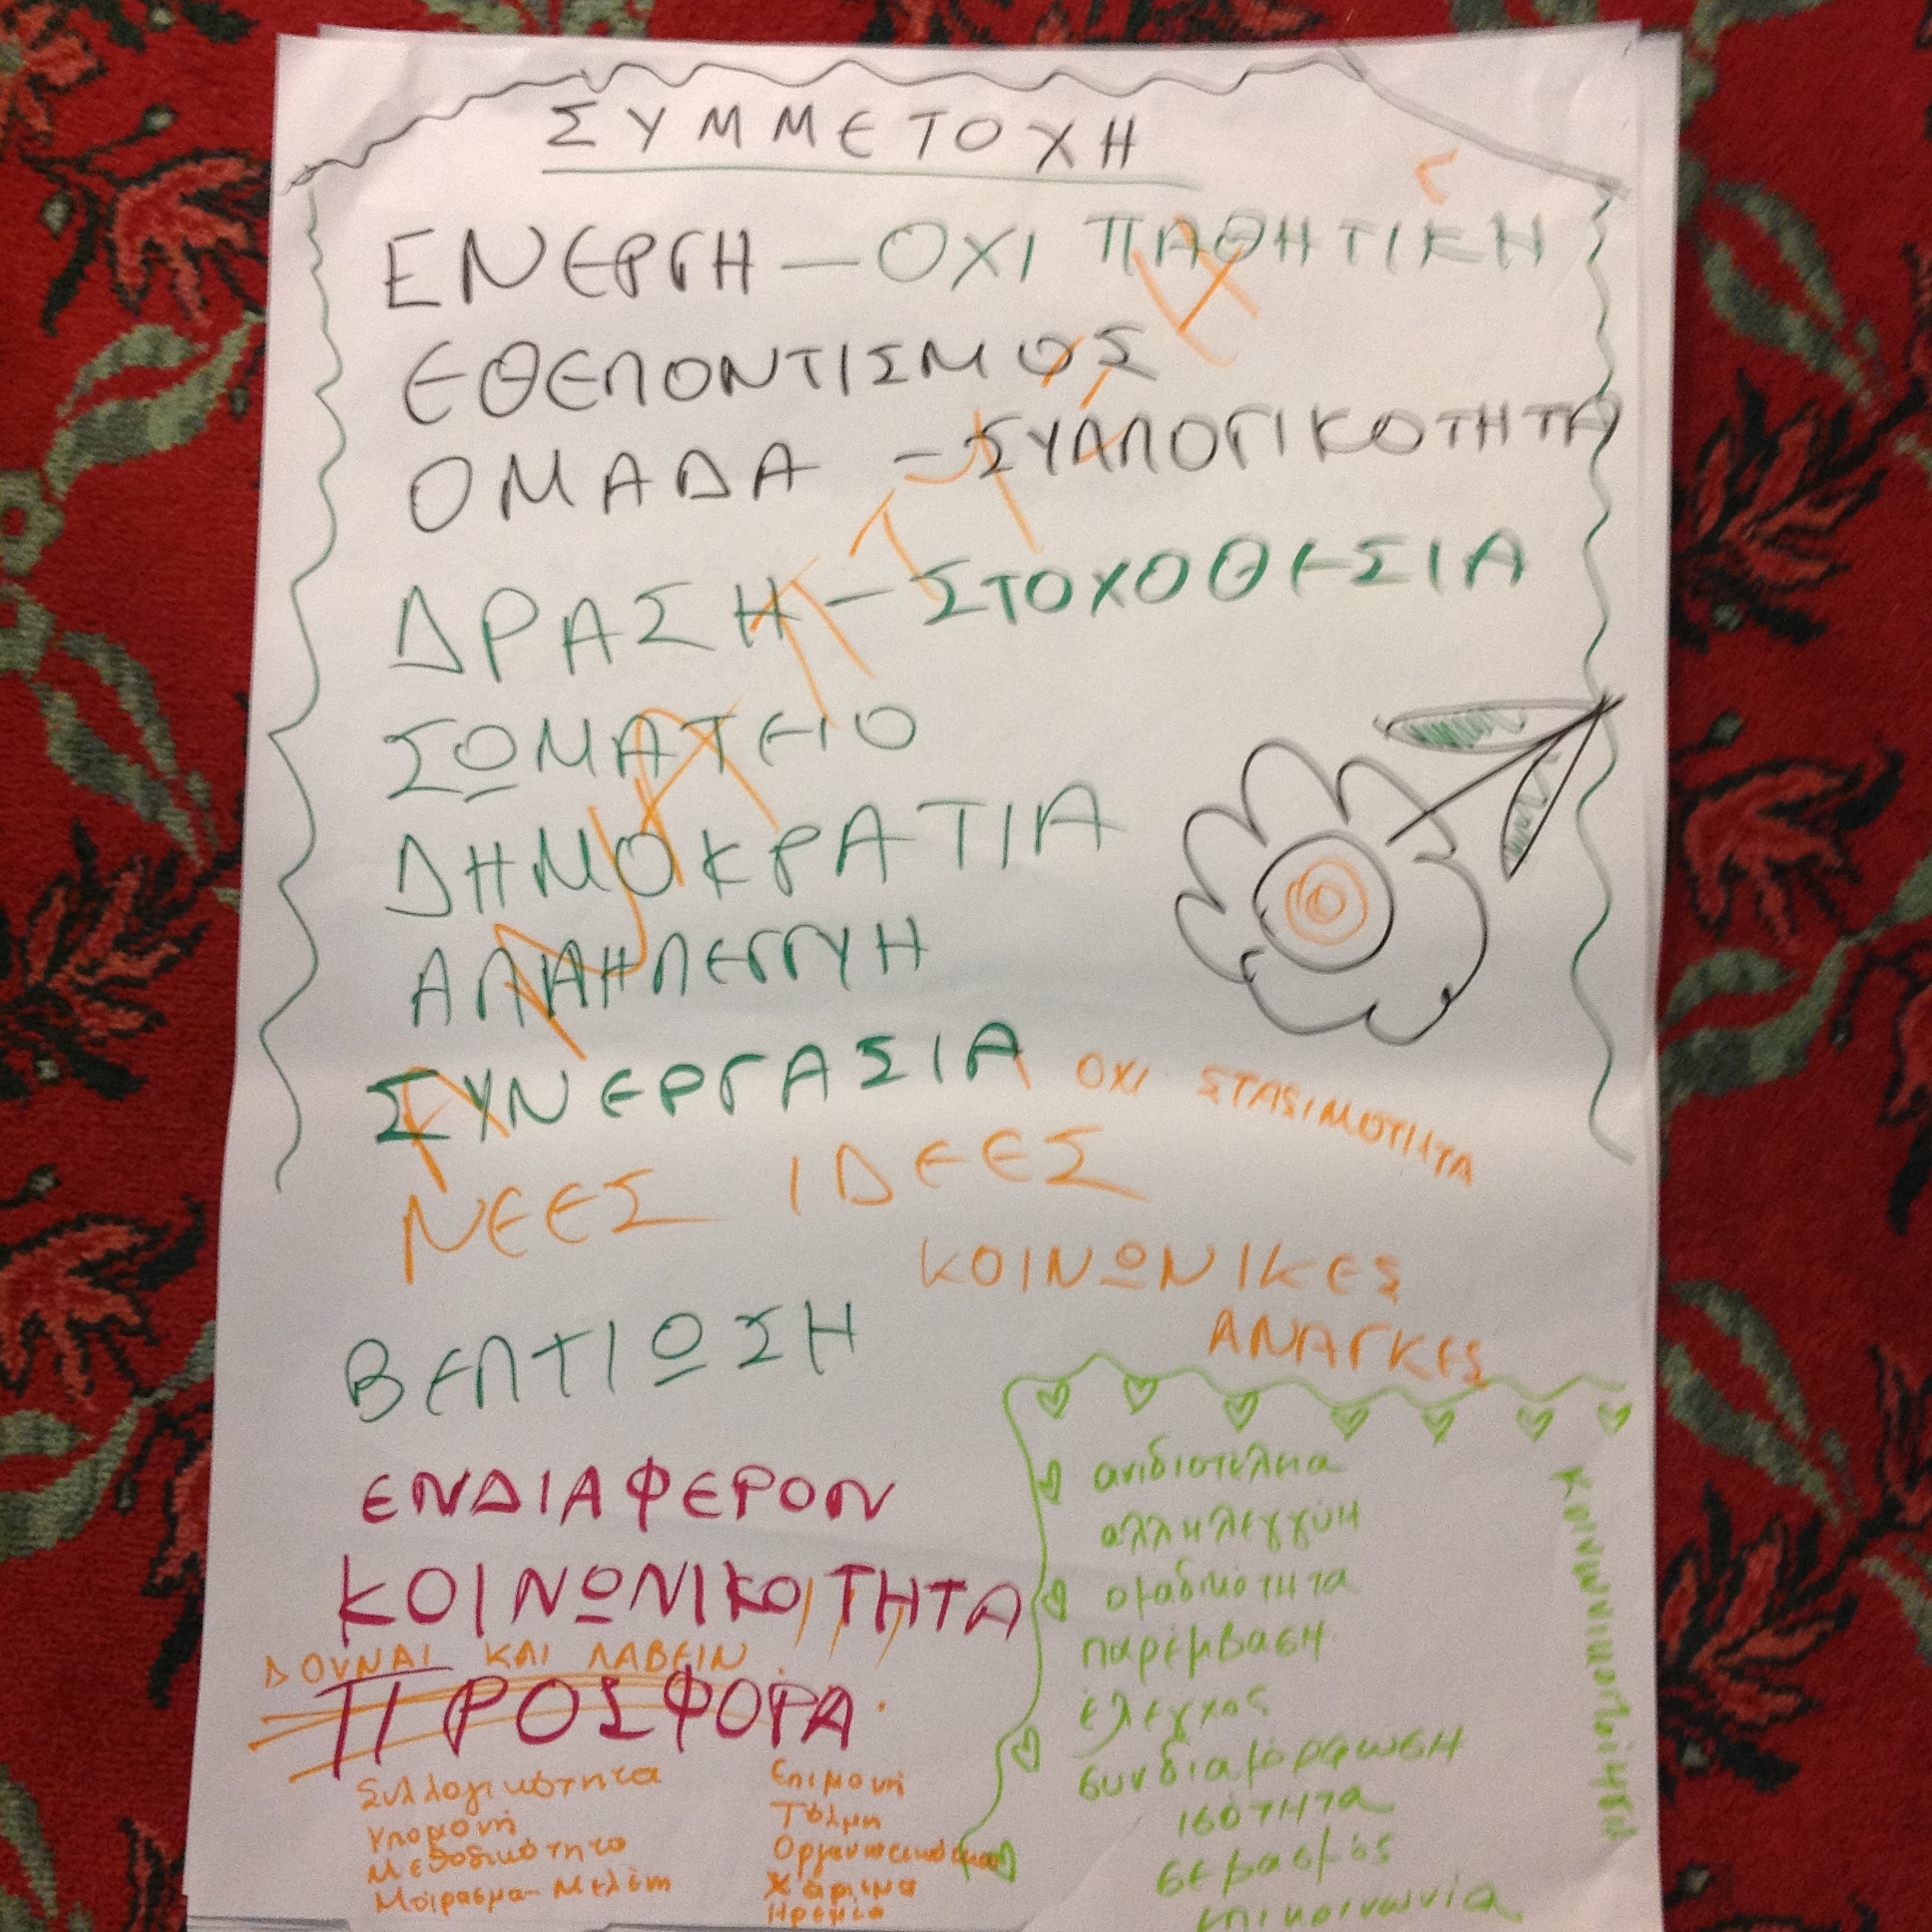 ΣΥΜΜΕΤΟΧΗ
ΕΝΕΡΓΗ — ΟΧΙ ΠΑΘΗΤΙΚΗ
ΕΘΕΛΟΝΤΙΣΜΟΣ
ΟΜΑΔΑ - ΣΥΛΛΟΓΙΚΟΤΗΤΑ
ΔΡΑΣΗ - ΣΤΟΧΟΘΕΣΙΑ
ΣΩΜΑΤΕΙΟ
ΔΗΜΟΚΡΑΤΙΑ
ΑΛΛΗΛΕΓΓΥΗ
ΣΥΝΕΡΓΑΣΙΑ
ΟΧΙ ΣΤΑΣΙΜΟΤΗΤΑ
ΝΕΕΣ ΙΔΕΕΣ
ΚΟΙΝΩΝΙΚΕΣ
ΑΝΑΓΚΕΣ
ΒΕΛΤΙΩΣΗ
ΕΝΔΙΑΦΕΡΟΝ
ΚΟΙΝΩΝΙΚΟΤΗΤΑ
ΔΟΥΝΑΙ ΚΑΙ ΛΑΒΕΙΝ
ΠΡΟΣΦΟΡΑ
Συλλογικότητα
Υπομονή
Μεθοδικότητα
Μοίρασμα - Μελέτη
Επιμονή
Τόλμη
Οργανωτικότητα
Χάρισμα
Ηρεμία
ανιδιοτέλεια
αλληλεγγύη
ομαδικότητα
παρέμβαση
έλεγχος
συνδιαμόρφωση
ισότητα
σεβασμός
επικοινωνία